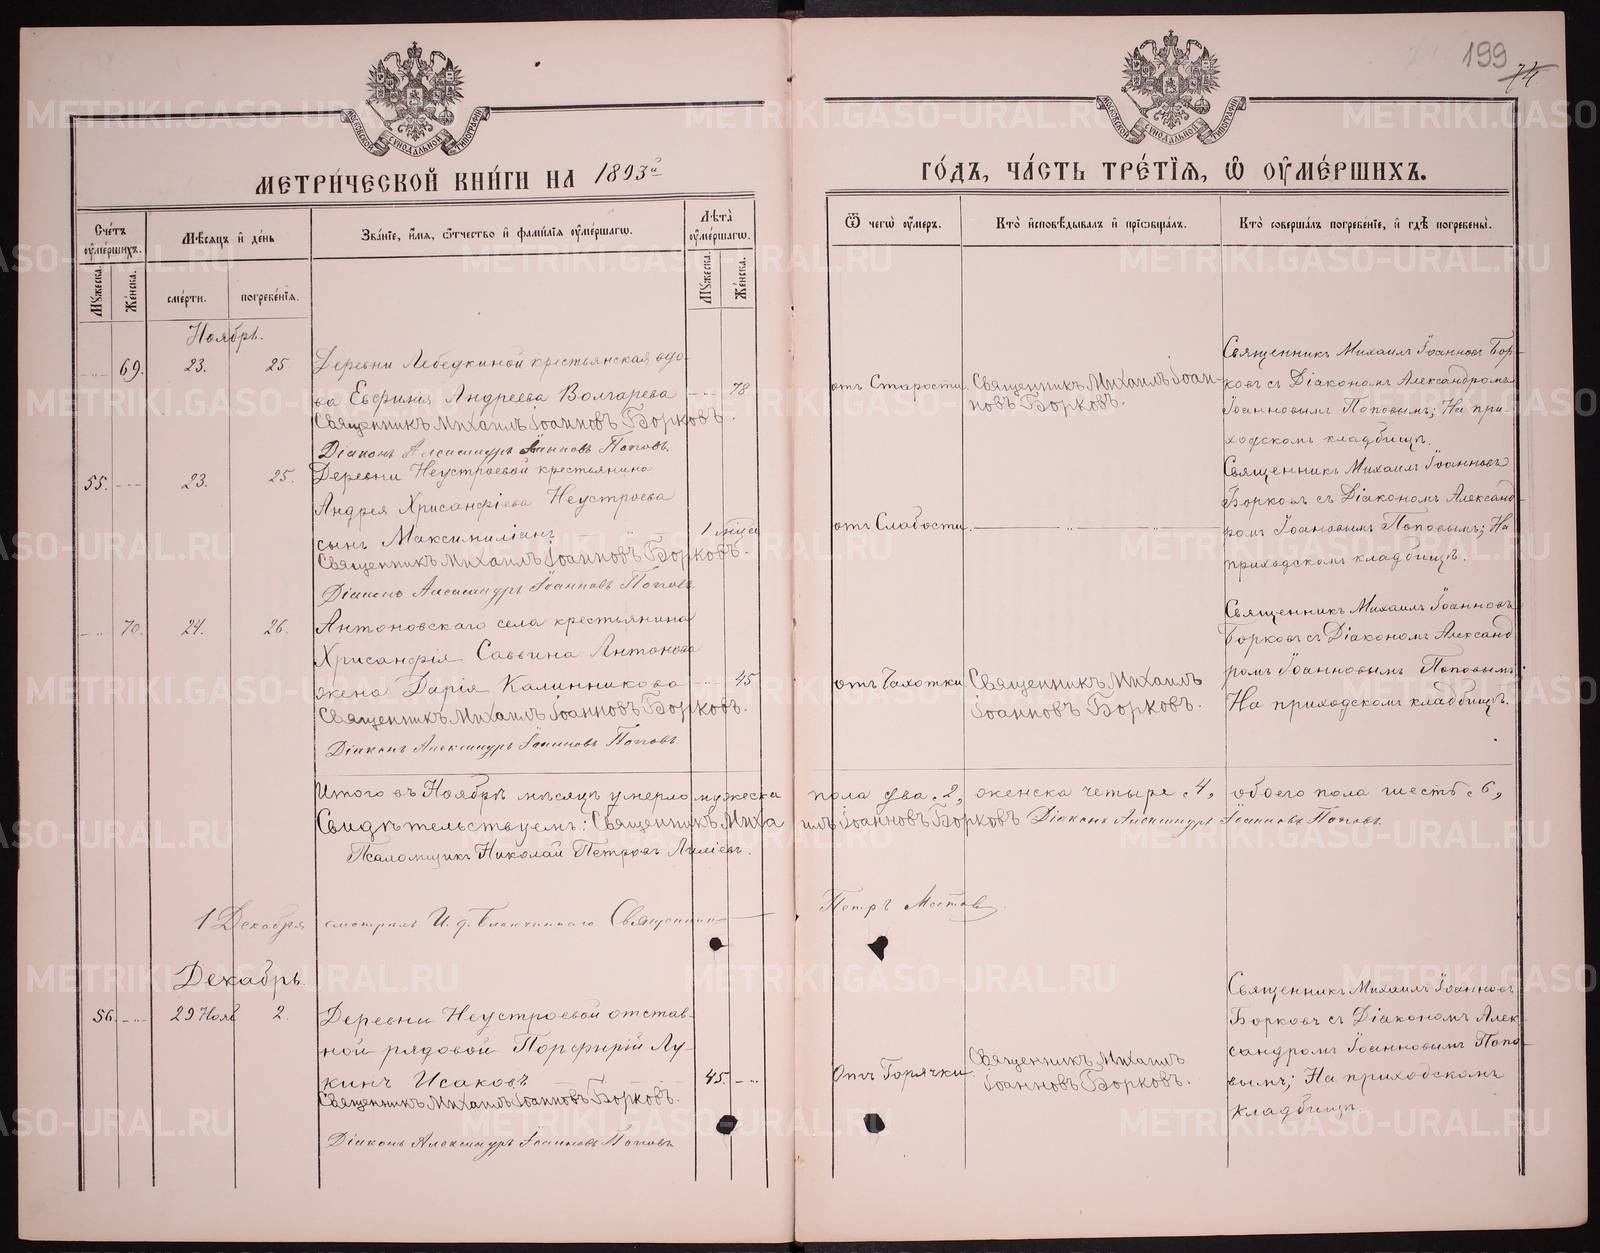 199
МОСКОВСКОЙ СѴНОДАЛЬНОЙ ТИПОГРАФІИ
МОСКОВСКОЙ СѴНОДАЛЬНОЙ ТИПОГРАФІИ
МЕТРИ́ЧЕСКОЙ КНИ́ГИ НА 1893й
ГО́ДЪ, ЧА́СТЬ ТРЕ́ТІѦ, Ѡ҆ ОУ҆МЕ́РШИХЪ.
Сче́тъ оу҆ме́ршихъ.
Мꙋ́жеска.
Же́нска.
Мѣ́сяцъ и҆ де́нь
сме́рти.
погребе́нїѧ.
Зва́нїе, и҆́мѧ, ѻ҆́тчество и҆ фами́лїѧ оу҆ме́ршагѡ.
Лѣ́та оу҆ме́ршагѡ.
Мꙋ́жеска.
Же́нска.
Ѿ чегѡ̀ оу҆́меръ.
Кто̀ и҆сповѣ́дывалъ и҆ прїѡбща́лъ.
Кто̀ соверша́лъ погребе́нїе, и҆ гдѣ̀ погребены̀.
Ноябрь.
69. 23. 25. Деревни Лебедкиной крестьянская вдо-
ва Евфимія Андреева Волгарева 78
Священникъ Михаилъ Іоанновъ Борковъ.
Діаконъ Александръ Іоанновъ Поповъ.
отъ Старости.
Священникъ Михаилъ Іоан-
новъ Борковъ.
Священникъ Михаилъ Іоанновъ Бор-
ковъ съ Діакономъ Александромъ
Іоанновымъ Поповымъ; На при-
ходскомъ кладбищѣ.
55. 23. 25. Деревни Неустроевой крестьянина
Андрея Хрисанфіева Неустроева
сынъ Максимиліанъ 1 мѣся
Священникъ Михаилъ Іоанновъ Борковъ.
Діаконъ Александръ Іоанновъ Поповъ.
отъ Слабости.
Священникъ Михаилъ Іоанновъ
Борковъ съ Діакономъ Александ-
ромъ Іоановымъ Поповымъ; На
приходскомъ кладбищѣ.
70. 24. 26. Антоновскаго села крестьянина
Хрисанфія Саввина Антонова
жена Дарія Калинникова 45
Священникъ Михаилъ Іоанновъ Борковъ.
Діаконъ Александръ Іоанновъ Поповъ.
отъ Чахотки
Священникъ Михаилъ
Іоанновъ Борковъ.
Священникъ Михаилъ Іоанновъ
Борковъ съ Діакономъ Александ
ромъ Іоанновымъ Поповымъ;
На приходскомъ кладбищѣ.
Итого въ Ноябрѣ мѣсяцѣ умерло мужеска пола два 2, женска четыре 4, обоего пола шесть 6,
Свидѣтельствуемъ: Священникъ Михаилъ Іоанновъ Борковъ Діаконъ Александръ Іоанновъ Поповъ.
Псаломщикъ Николай Петровъ
1 Декабря смотрѣлъ И. д. Благочиннаго Священник Петръ
Декабрь.
56. 29 Нояб 2. Деревни Неустроевой отстав-
ной рядовой Порфирій Лу-
кинъ Исаковъ 45.
Священникъ Михаилъ Іоанновъ Борковъ.
Діаконъ Александръ Іоанновъ Поповъ.
Отъ Горячки
Священникъ Михаилъ
Іоанновъ Борковъ.
Священникъ Михаилъ Іоанновъ
Борковъ съ Діакономъ Алек-
сандромъ Іоанновымъ Попо-
вымъ; На приходскомъ
кладбищѣ.
METRIKI.GASO-URAL.RU